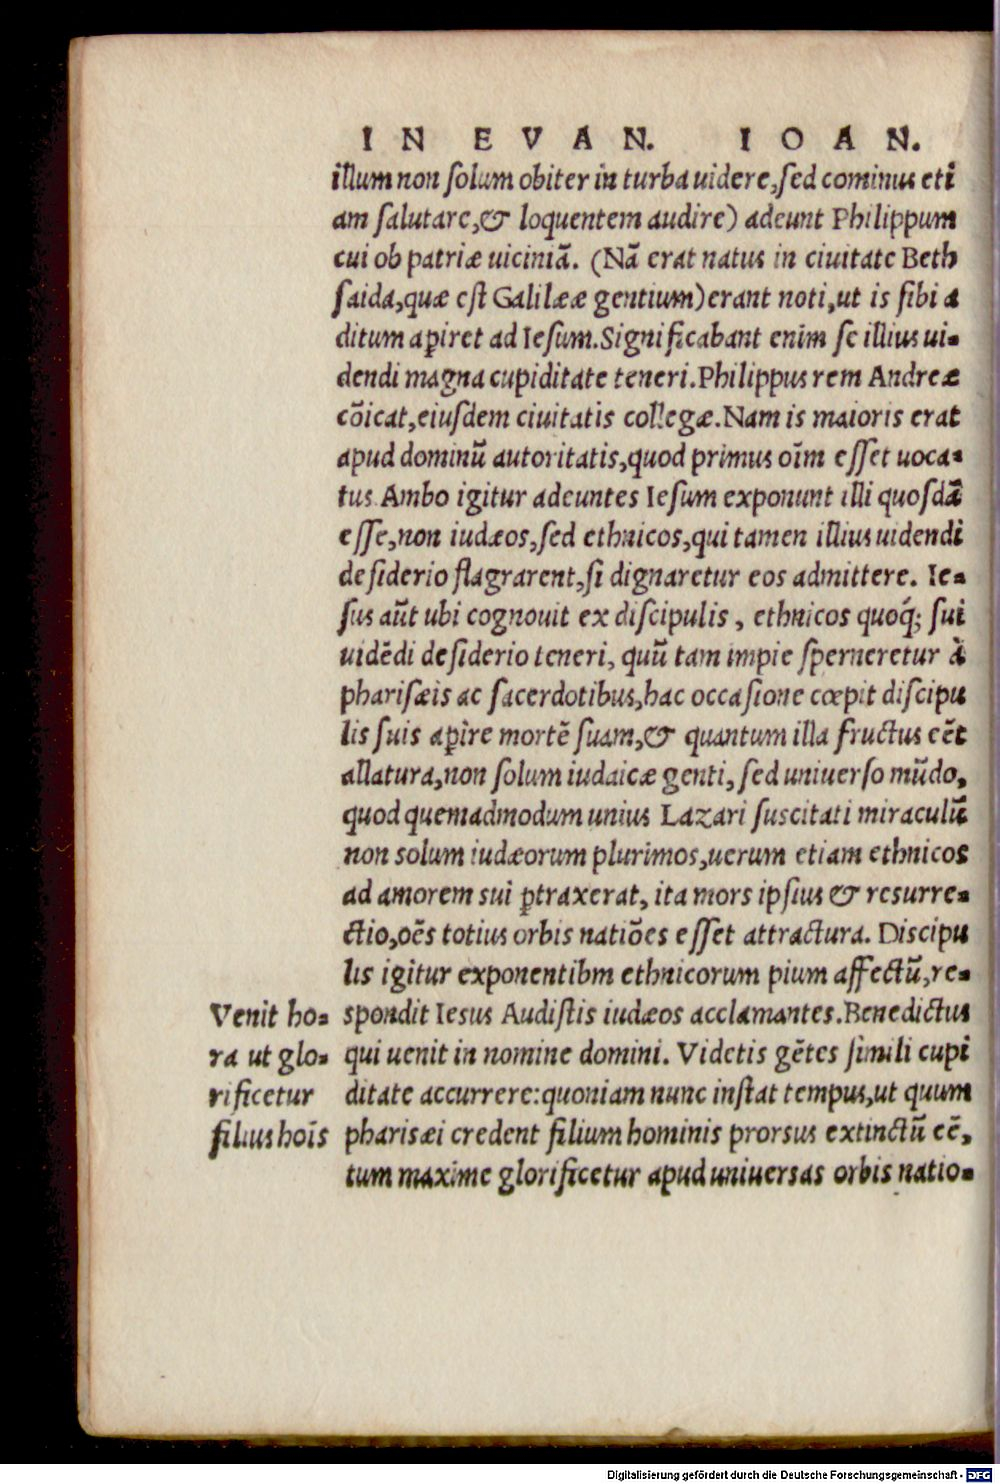 IN EVAN. IOAN.
illum non ſolum obiter in turba uidere,ſed cominus eti
am ſalutare,& loquentem audire) adeunt Philippum
cui ob patriæ uiciniā. (Nā erat natus in ciuitate Beth
ſaida,quæ eſt Galilææ gentium)erant noti,ut is ſibi a
ditum aꝑiret ad Ieſum.Significabant enim ſe illius ui-
dendi magna cupiditate teneri.Philippus rem Andreæ
cōicat,eiuſdem ciuitatis collegæ.Nam is maioris erat
apud dominū autoritatis,quod primus oīm eſſet uoca-
tus.Ambo igitur adeuntes Ieſum exponunt illi quoſdā
eſſe,non iudæos,ſed ethnicos,qui tamen illius uidendi
deſiderio flagrarent,ſi dignaretur eos admittere. Ie-
ſus aūt ubi cognouit ex diſcipulis, ethnicos quoq́; ſui
uidēdi deſiderio teneri, quū tam impie ſperneretur à
phariſæis ac ſacerdotibus,hac occaſione cœpit diſcipu
lis ſuis aꝑire mortē ſuam,& quantum illa fructus eēt
allatura,non ſolum iudaicæ genti, ſed uniuerſo mūdo,
quod quemadmodum unius Lazari ſuscitati miraculū
non solum iudæorum plurimos,uerum etiam ethnicos
ad amorem sui ꝑtraxerat, ita mors ipſius & resurre-
ctio,oēs totius orbis natiōes eſſet attractura. Discipu
lis igitur exponentibm ethnicorum pium affectū,re-
spondit Iesus Audiſtis iudæos acclamantes.Benedictus
qui uenit in nomine domini. Videtis gētes ſimili cupi
ditate accurrere:quoniam nunc inſtat tempus,ut quum
pharisæi credent filium hominis prorsus extinctū eē,
tum maxime glorificetur apud uniuersas orbis natio-
Venit ho-
ra ut glo-
rificetur
filius hoīs
Digitalisierung gefördert durch die Deutsche Forschungsgemeinschaft - DFG